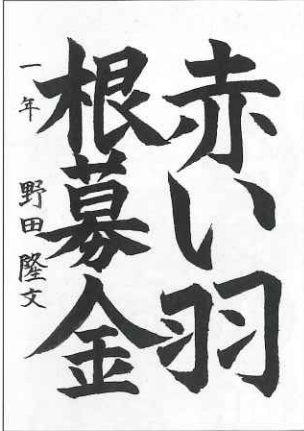 赤い羽
根募金
一年 野田隆文